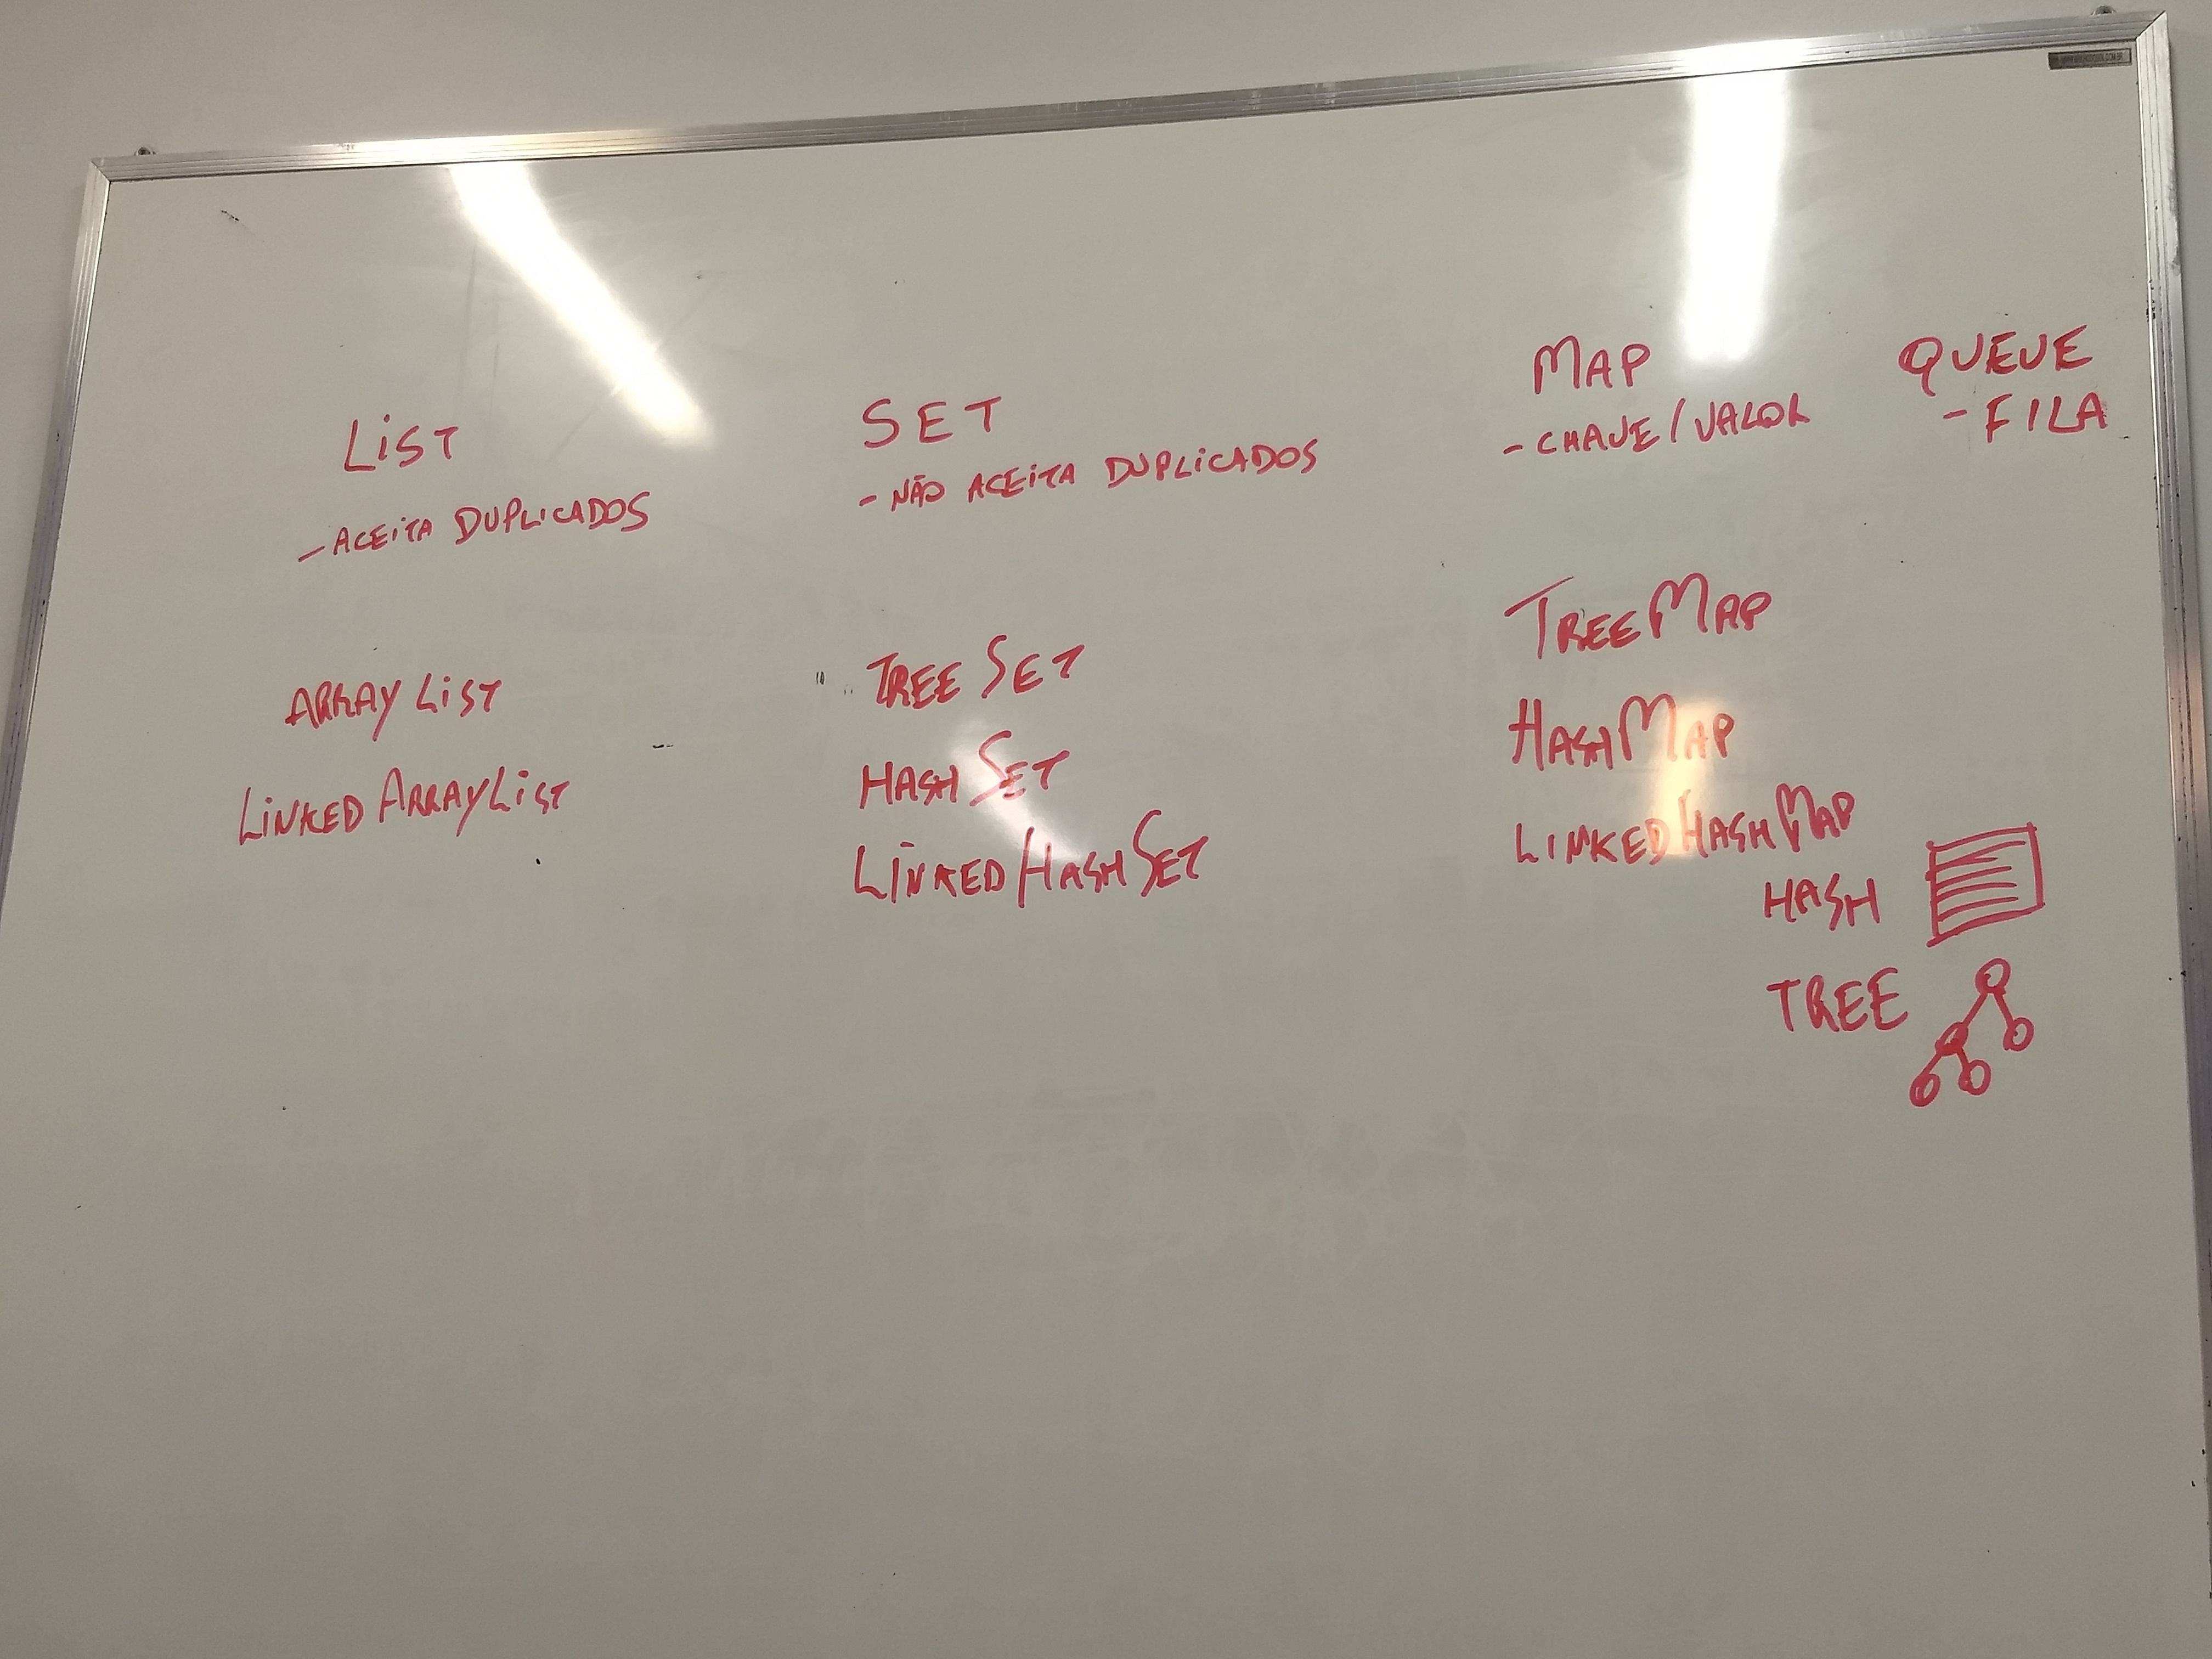 LIST
- ACEITA DUPLICADOS
ARRAY LIST
LINKED ARRAYLIST
SET
- NÃO ACEITA DUPLICADOS
TREE SET
HASH SET
LINKED HASH SET
MAP
- CHAVE / VALOR
TREEMAP
HASHMAP
LINKED HASH MAP
QUEUE
- FILA
HASH
TREE